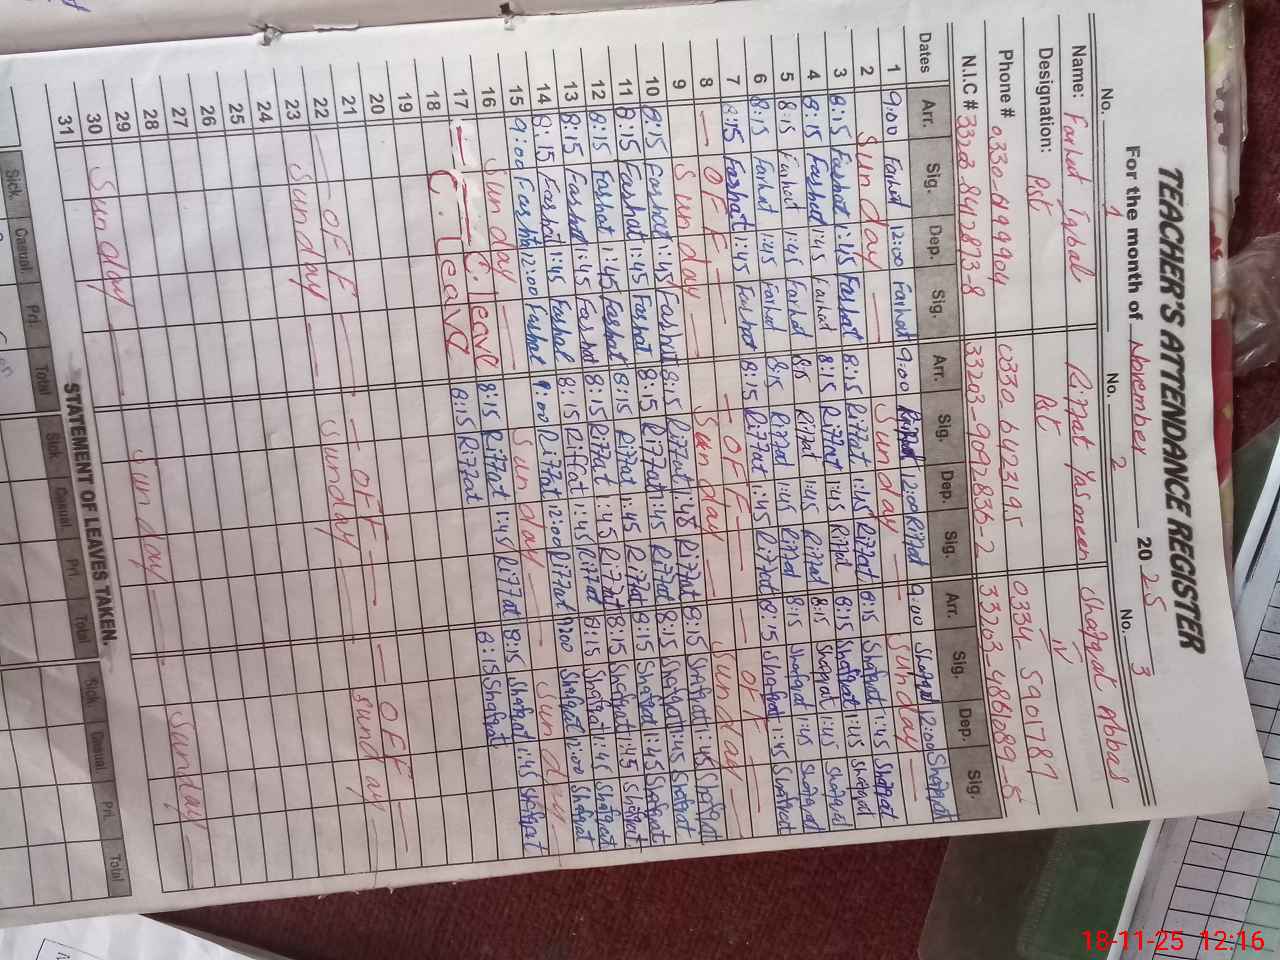 TEACHER'S ATTENDANCE REGISTER
For the month of November 20 25
No. 1 No. 2 No. 3
Name: Farhat Iqbal Riffat Yasmeen Shafqat Abbas
Designation: Pst Pst
Phone # 0330-6199904 0330-6423195 0334-5901787
N.I.C # 33203-8412873-8 33203-9092836-2 33203-4861089-5
Dates Arr. Sig. Dep. Sig. Arr. Sig. Dep. Sig. Arr. Sig. Dep. Sig.
1 9:00 Farhat 12:00 Farhat 9:00 Riffat 12:00 Riffat 9:00 Shafqat 12:00 Shafqat
2 Sunday Sunday Sunday
3 8:15 Farhat 1:45 Farhat 8:15 Riffat 1:45 Riffat 8:15 Shafqat 1:45 Shafqat
4 8:15 Farhat 1:45 Farhat 8:15 Riffat 1:45 Riffat 8:15 Shafqat 1:45 Shafqat
5 8:15 Farhat 1:45 Farhat 8:15 Riffat 1:45 Riffat 8:15 Shafqat 1:45 Shafqat
6 8:15 Farhat 1:45 Farhat 8:15 Riffat 1:45 Riffat 8:15 Shafqat 1:45 Shafqat
7 8:15 Farhat 1:45 Farhat 8:15 Riffat 1:45 Riffat 8:15 Shafqat 1:45 Shafqat
8 OFF OFF OFF
9 Sunday Sunday Sunday
10 8:15 Farhat 1:45 Farhat 8:15 Riffat 1:45 Riffat 8:15 Shafqat 1:45 Shafqat
11 8:15 Farhat 1:45 Farhat 8:15 Riffat 1:45 Riffat 8:15 Shafqat 1:45 Shafqat
12 8:15 Farhat 1:45 Farhat 8:15 Riffat 1:45 Riffat 8:15 Shafqat 1:45 Shafqat
13 8:15 Farhat 1:45 Farhat 8:15 Riffat 1:45 Riffat 8:15 Shafqat 1:45 Shafqat
14 8:15 Farhat 1:45 Farhat 8:15 Riffat 1:45 Riffat 8:15 Shafqat 1:45 Shafqat
15 9:00 Farhat 12:00 Farhat 9:00 Riffat 12:00 Riffat 9:00 Shafqat 12:00 Shafqat
16 Sunday Sunday Sunday
17 C. leave 8:15 Riffat 1:45 Riffat 8:15 Shafqat 1:45 Shafqat
18 C. Leave 8:15 Riffat 8:15 Shafqat
19
20
21
22 OFF OFF OFF
23 Sunday Sunday Sunday
24
25
26
27
28
29
30 Sunday Sunday Sunday
31
STATEMENT OF LEAVES TAKEN.
Sick Casual Pri. Total Sick Casual Pri. Total Sick Casual Pri. Total
18-11-25 12:16